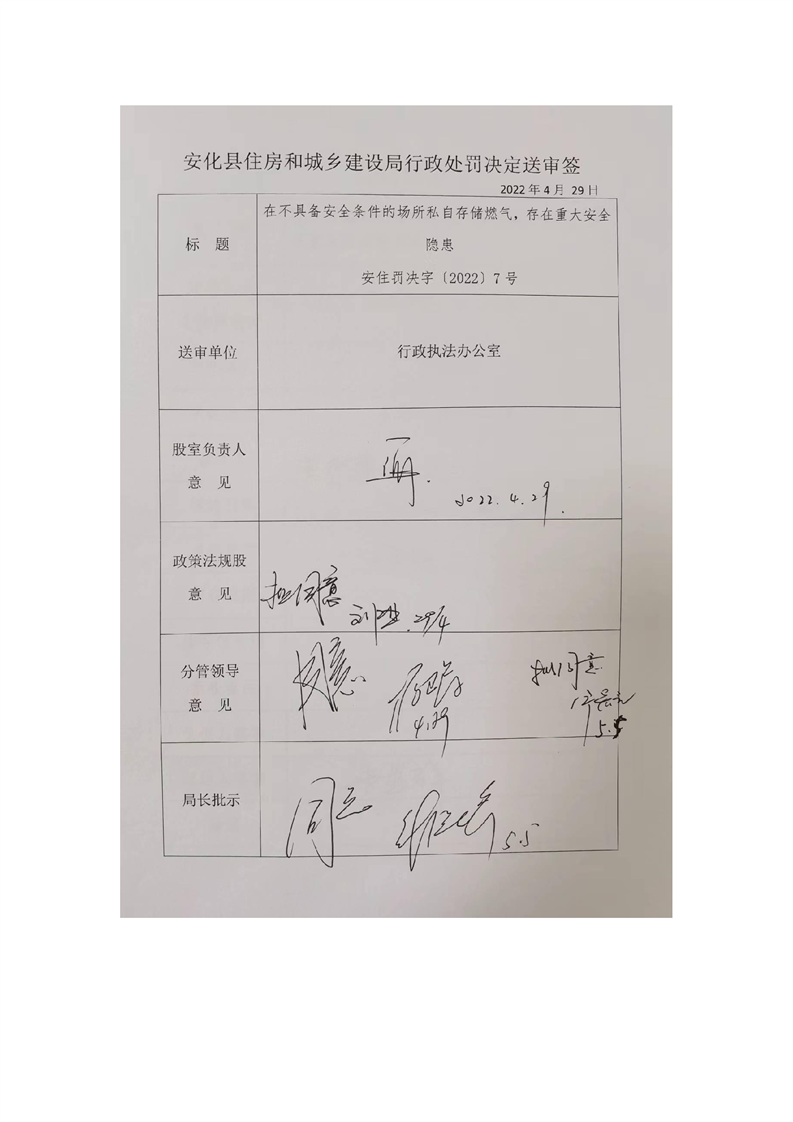 安化县住房和城乡建设局行政处罚决定送审签
2022年4月 29日
标 题
在不具备安全条件的场所私自存储燃气，存在重大安全
隐患
安住罚决字〔2022〕7号
送审单位
行政执法办公室
股室负责人
意 见
2022.4.29.
政策法规股
意 见
拟同意
29/4
分管领导
意 见
同意
4.29
拟同意
5.5
局长批示
同意
5.5